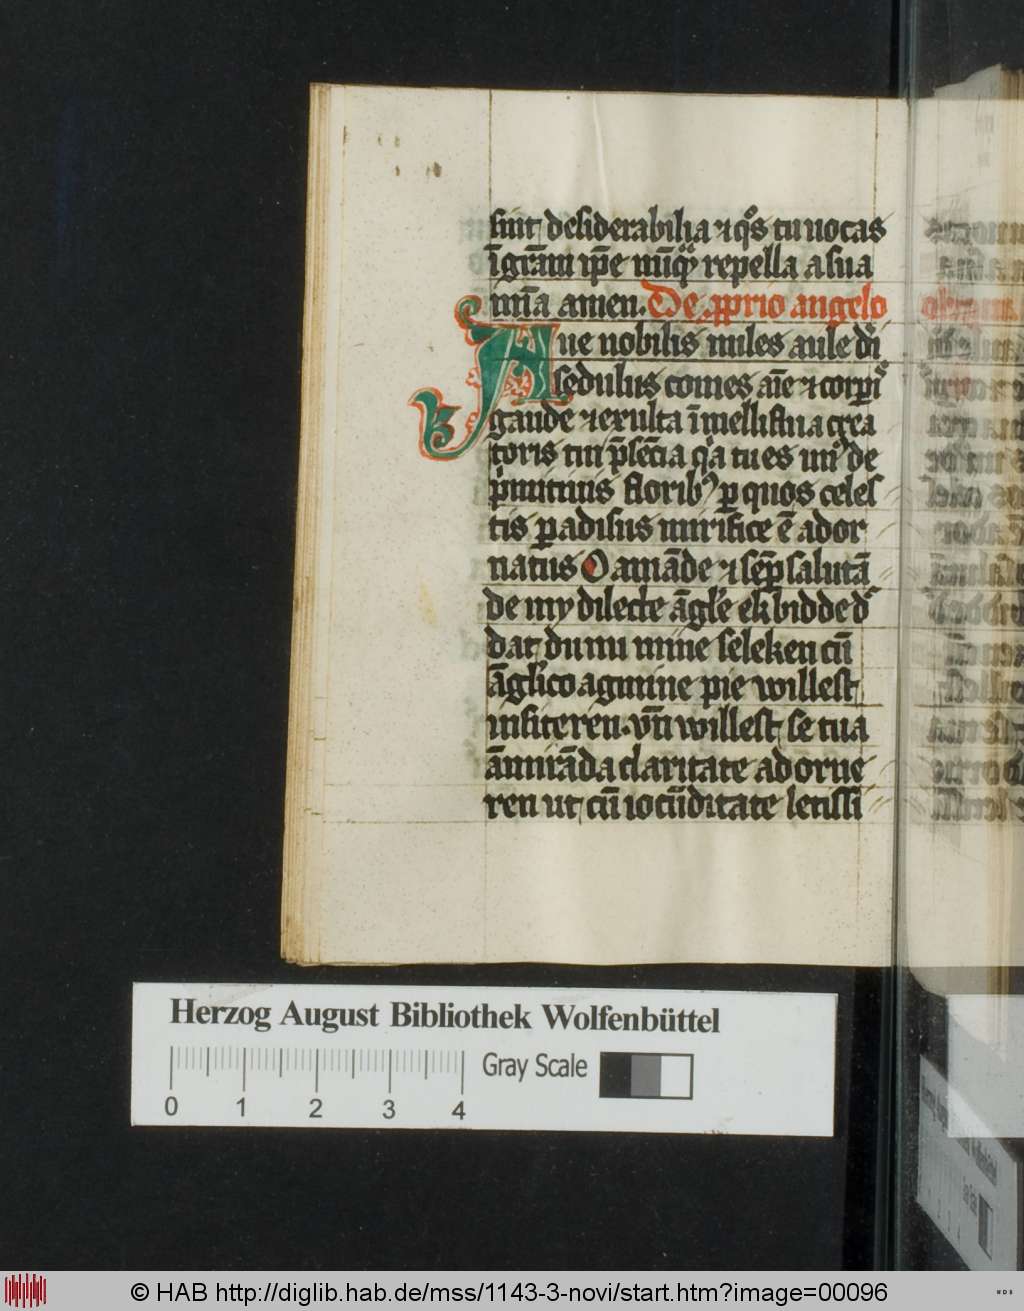 sint desiderabilia ⁊ qͦs tu uocas
ī gr̄am ip̄e nūq̄ repella a sua
mīa amen. De ꝓprio angelo
Aue nobilis miles aule dn̄i
sedulus comes aīe ⁊ corpis
gaude ⁊ exulta ī melliflua crēa
toris tui p̄sēcia qͥa tu es unꝰ de
p̄mitiuis floribꝰ ꝑ quos celes
tis ꝑadisus mirifice ē ador
natus O amāde ⁊ semꝑ salutā
de my dilecte āgle ek bidde di
dat du nu mine seleken cū
āglico agmine pie willest
insiteren. vn̄ willest se tua
āmirāda claritate adorne
ren ut cū iocūditate letissi
Herzog August Bibliothek Wolfenbüttel
Gray Scale
0 1 2 3 4
© HAB http://diglib.hab.de/mss/1143-3-novi/start.htm?image=00096